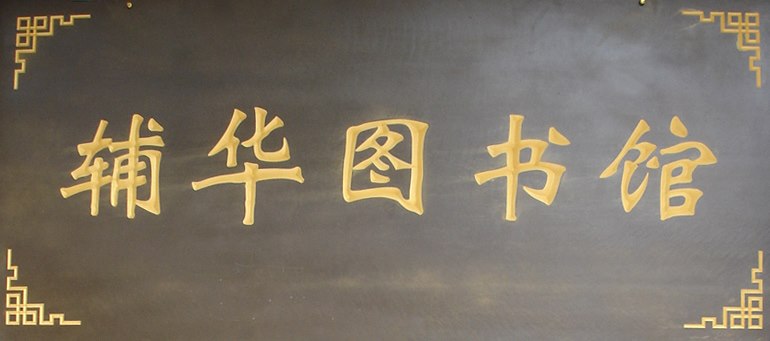 辅华图书馆